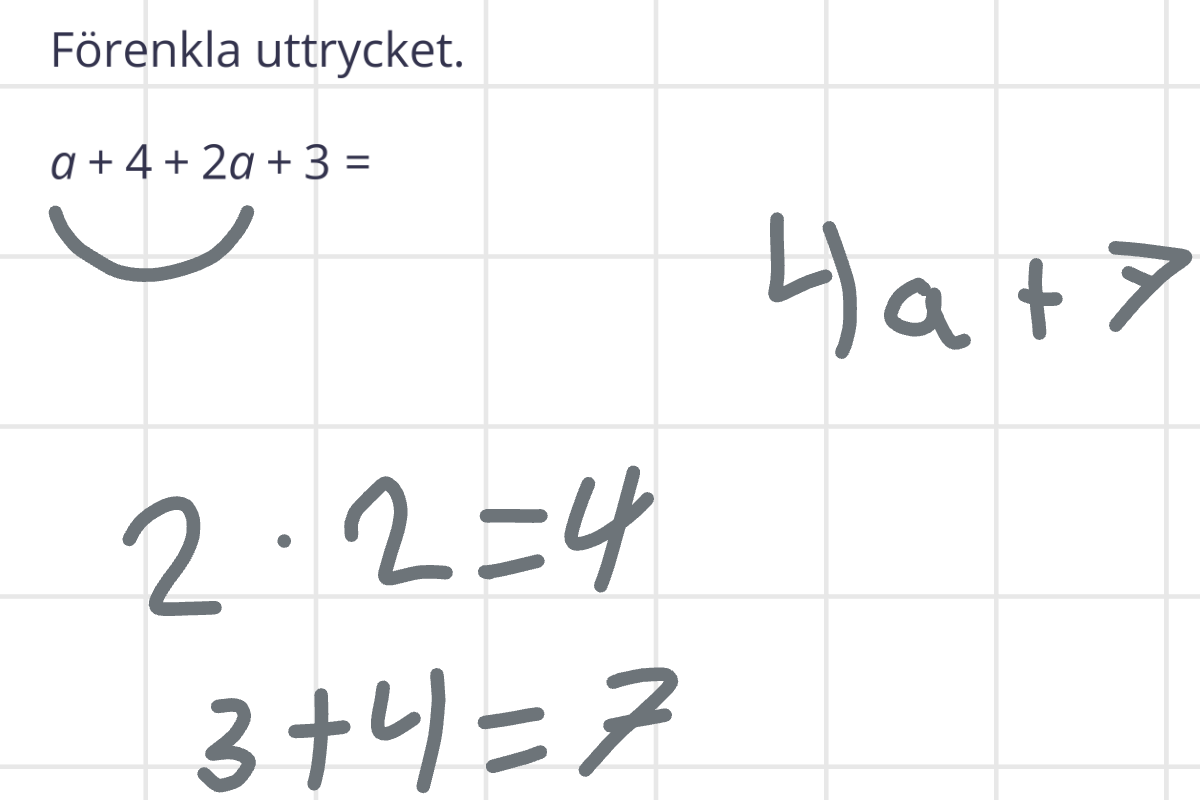 Förenkla uttrycket.
a + 4 + 2a + 3 =
4a + 7
2 · 2 = 4
3 + 4 = 7